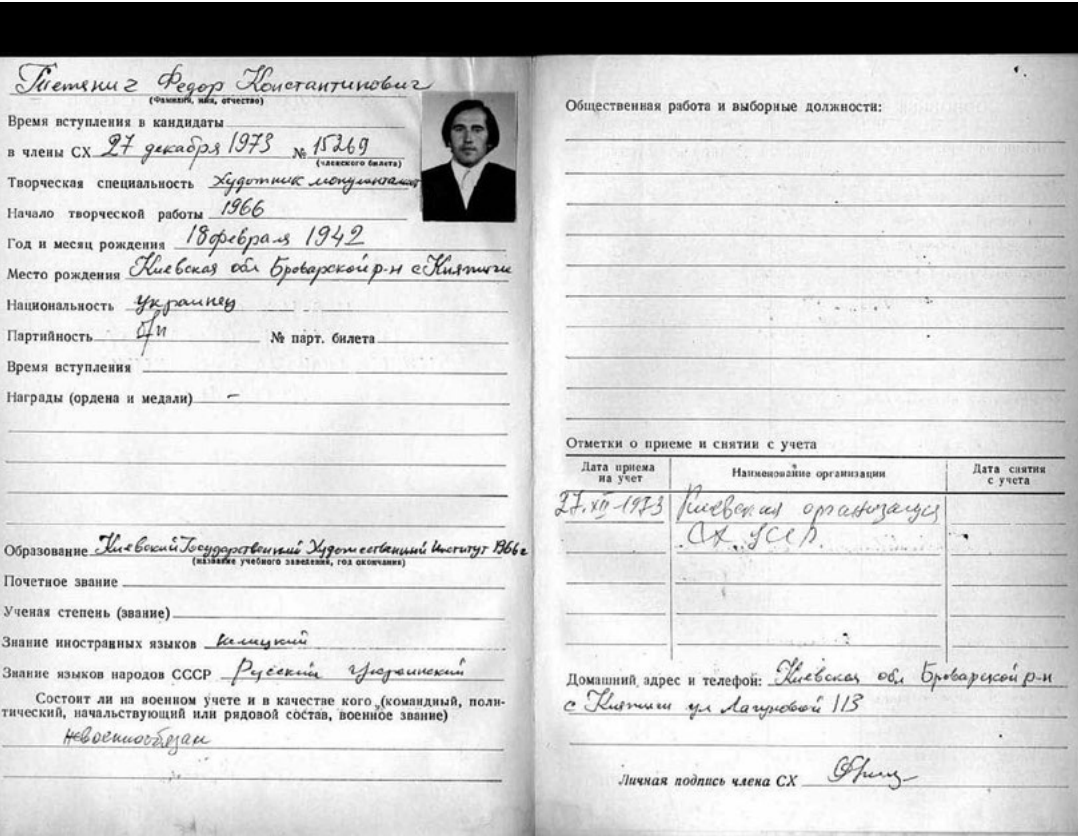 Тетянич Федор Константинович
(Фамилия, имя, отчество)
Время вступления в кандидаты
в члены СХ 27 декабря 1973 № 15269
(членского билета)
Творческая специальность Художник монументалист
Начало творческой работы 1966
Год и месяц рождения 18 февраля 1942
Место рождения Киевская обл Броварской р-н с Княжичи
Национальность украинец
Партийность б/п № парт. билета
Время вступления
Награды (ордена и медали) –
Образование Киевский Государственный Художественный Институт 1966 г
(название учебного заведения, год окончания)
Почетное звание
Ученая степень (звание)
Знание иностранных языков немецкий
Знание языков народов СССР Русский Украинский
Состоит ли на военном учете и в качестве кого (командный, поли-
тический, начальствующий или рядовой состав, военное звание)
невоеннообязан
Общественная работа и выборные должности:
Отметки о приеме и снятии с учета
Дата приема на учет Наименование организации Дата снятия с учета
27.XII-1973 Киевская организация
СХ УССР.
Домашний адрес и телефон: Киевская обл Броварской р-н
с Княжичи ул 113
Личная подпись члена СХ